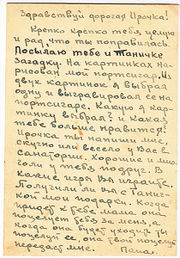 Здравствуй дорогая Ирочка!
Крепко крепко тебя целую
и рад, что ты поправилась.
Посылаю тебе и Таничке
Загадку. На картинках на-
рисован мой портсигар. Из
двух картинок я выбрал
одну и выгравировал ее на
портсигаре. Какую я кар-
тинку выбрал? и какая
тебе больше нравится?
Ирочка ты напиши мне,
скучно или весело у Вас в
санатории. Хорошие и мно-
го ли у тебя подруг. В
какие игры Вы играете.
Получили ли Вы с Танич-
кой мои подарки. Когда
придет к тебе мама она
поцелует тебя за меня, а
когда она будет уходить ты
поцелуй ее, она твой поцелуй
передаст мне. Папа.